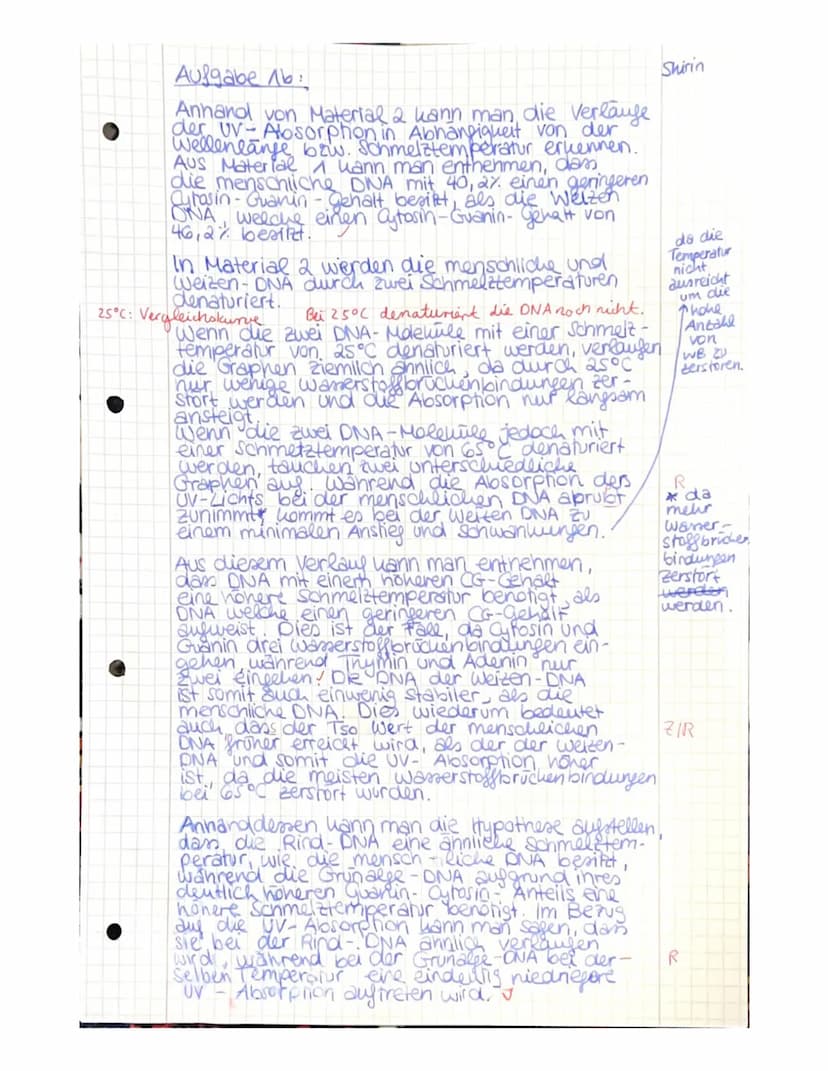 Shirin
Aufgabe 1b:
Anhand von Material 2 kann man die Verläufe
der UV-Absorption in Abhängigkeit von der
Wellenlänge bzw. Schmelztemperatur erkennen.
Aus Material 1 kann man entnehmen, dass
die menschliche DNA mit 40,2% einen geringeren
Cytosin-Guanin-Gehalt besitzt, als die Weizen
DNA, welche einen Cytosin-Guanin-Gehalt von
46,2% besitzt.
In Material 2 werden die menschliche und
Weizen-DNA durch zwei Schmelztemperaturen
denaturiert.
25°C: Vergleichskurve Bei 25°C denaturiert die DNA noch nicht.
Wenn die zwei DNA-Moleküle mit einer Schmelz-
temperatur von 25°C denaturiert werden, verlaufen
die Graphen ziemlich ähnlich, da durch 25°C
nur wenige Wasserstoffbrückenbindungen zer-
stört werden und die Absorption nur langsam
ansteigt.
Wenn die zwei DNA-Moleküle jedoch mit
einer Schmelztemperatur von 65°C denaturiert
werden, tauchen zwei unterschiedliche
Graphen auf. Während die Absorption des
UV-Lichts bei der menschlichen DNA abrupt
zunimmt* kommt es bei der Weizen DNA zu
einem minimalen Anstieg und Schwankungen.
da die
Temperatur
nicht
ausreicht
um die
hohe
Anzahl
von
WB zu
zerstören.
R
* da
mehr
Wasser-
stoffbrücken
bindungen
zerstört
werden
werden.
Aus diesem Verlauf kann man entnehmen,
dass DNA mit einem höheren CG-Gehalt
eine höhere Schmelztemperatur benötigt, als
DNA welche einen geringeren CG-Gehalt
aufweist. Dies ist der Fall, da Cytosin und
Guanin drei Wasserstoffbrückenbindungen ein-
gehen, während Thymin und Adenin nur
zwei eingehen! Die DNA der Weizen-DNA
ist somit auch einwenig stabiler, als die
menschliche DNA. Dies wiederum bedeutet
auch, dass der T50 Wert der menschlichen
DNA früher erreicht wird, als der der Weizen-
DNA und somit die UV-Absorption höher
ist, da die meisten Wasserstoffbrückenbindungen
bei 65°C zerstört wurden.
Z/R
Anhanddessen kann man die Hypothese aufstellen,
dass die Rind-DNA eine ähnliche Schmelztem-
peratur, wie die mensch-liche DNA besitzt,
während die Grünalge-DNA aufgrund ihres
deutlich höheren Guanin-Cytosin-Anteils eine
höhere Schmelztemperatur benötigt. Im Bezug
auf die UV-Absorption kann man sagen, dass
sie bei der Rind-DNA ähnlich verlaufen
wird, während bei der Grünalge-DNA bei der-
selben Temperatur eine eindeutig niedrigere
UV-Absorption auftreten wird.
R